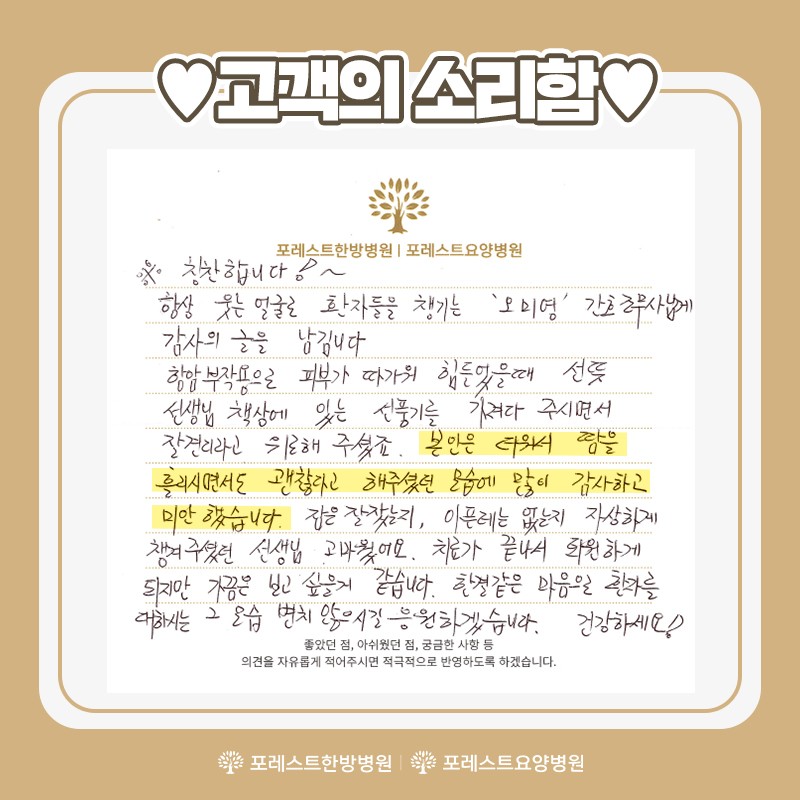 ♥고객의 소리함♥
포레스트한방병원 | 포레스트요양병원
칭찬합니다!~
항상 웃는 얼굴로 환자들을 챙기는 '오미영' 간호조무사님께
감사의 글을 남깁니다
항암부작용으로 피부가 따가워 힘든었을때 선뜻
선생님 책상에 있는 선풍기를 가져다 주시면서
잘견디라고 위로해 주셨죠. 본인은 더워서 땀을
흘리시면서도 괜찮다고 해주셨던 모습에 많이 감사하고
미안했습니다. 잠은 잘잤는지, 아픈데는 없는지 자상하게
챙겨주셨던 선생님 고마웠어요. 치료가 끝나서 퇴원하게
되지만 가끔은 보고싶을거 같습니다. 한결같은 마음으로 환자를
대하시는 그 모습 변치 않으시길 응원하겠습니다. 건강하세요!
좋았던 점, 아쉬웠던 점, 궁금한 사항 등
의견을 자유롭게 적어주시면 적극적으로 반영하도록 하겠습니다.
포레스트한방병원 | 포레스트요양병원